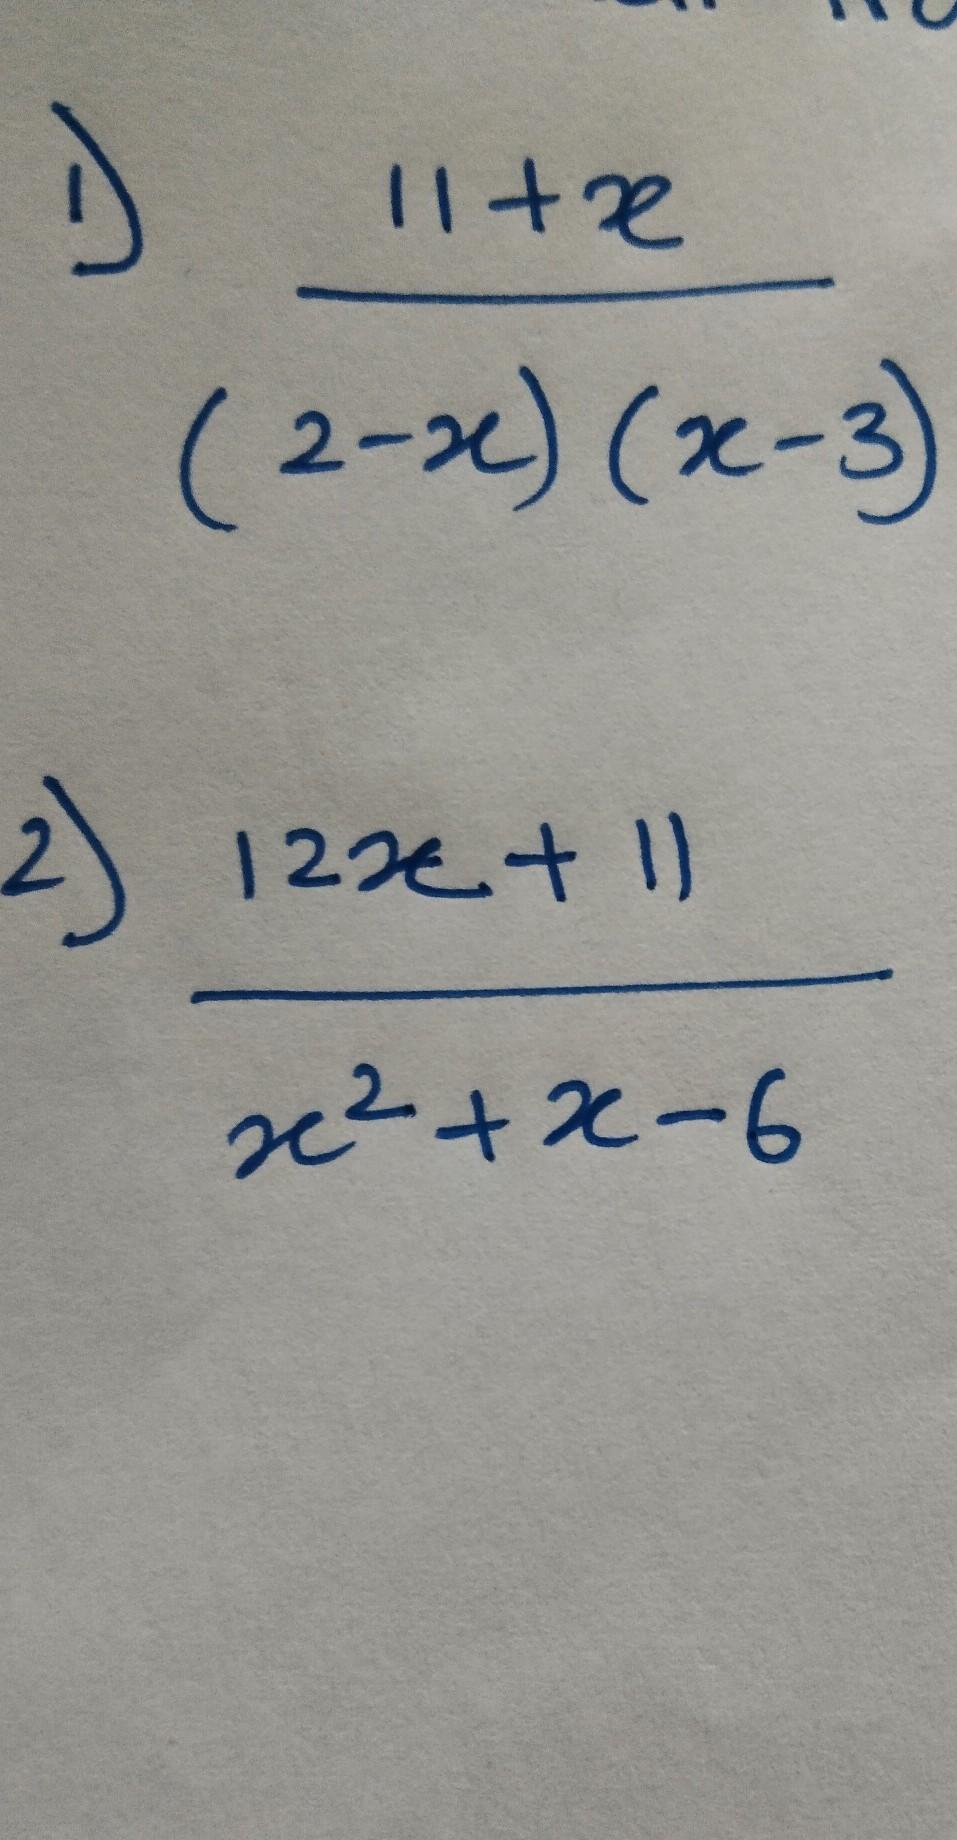 1) 11+x
(2-x)(x-3)
2) 12x+11
x²+x-6